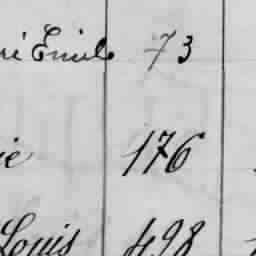 ri Emile 73
ie 176
Louis 498